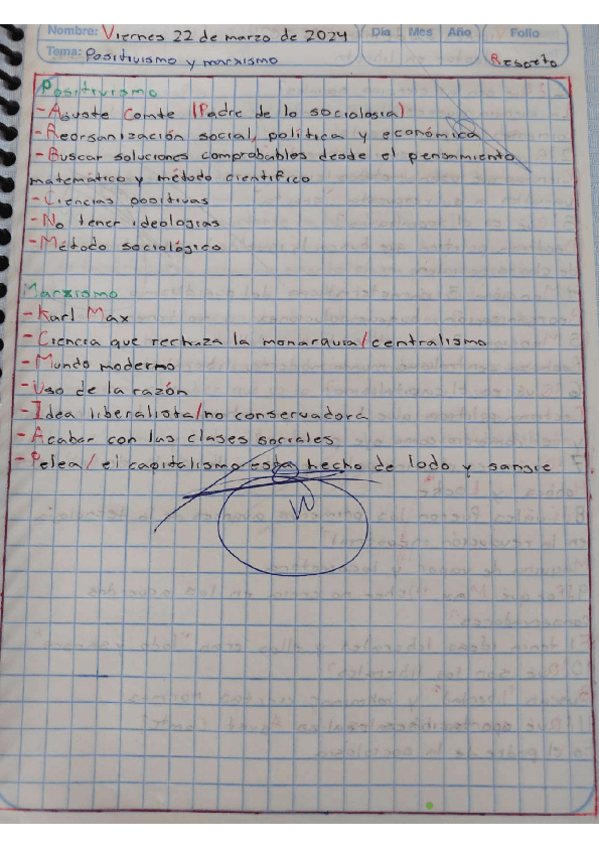 Nombre: Viernes 22 de marzo de 2024 Día Mes Año Folio
Tema: Positivismo y marxismo Resorto
Positivismo
- Aguste Comte (Padre de la sociologia)
- Reorganización social, política y económica
- Buscar soluciones comprobables desde el pensamiento
matemático y método científico
- Ciencias positivas
- No tener ideologías
- Método sociológico
Marxismo
- Karl Max
- Ciencia que rechaza la monarquia/centralismo
- Mundo moderno
- Uso de la razón
- Idea liberalista/no conservadora
- Acabar con las clases sociales
- Pelea/el capitalismo esta hecho de lodo y sangre